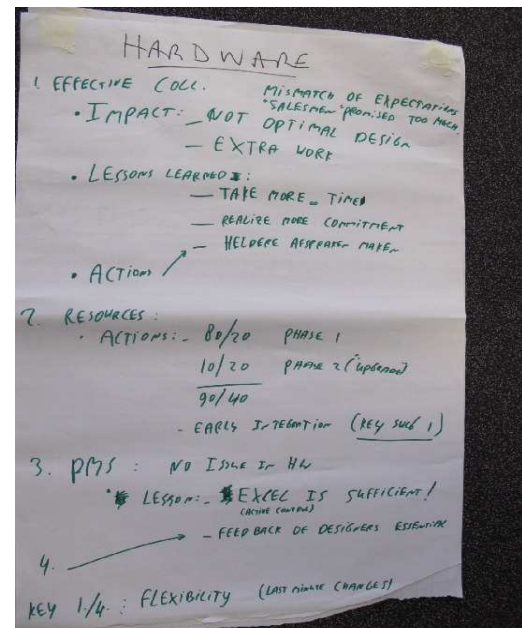 HARDWARE
1. EFFECTIVE COLL. MISMATCH OF EXPECTATIONS
"SALESMEN" PROMISED TOO MUCH.
• IMPACT: – NOT OPTIMAL DESIGN
– EXTRA WORK
• LESSONS LEARNED:
– TAKE MORE TIME
– REALIZE MORE COMMITMENT
– HELDERE AFSPRAKEN MAKEN
• ACTIONS
2. RESOURCES:
• ACTIONS: – 80/20 PHASE 1
10/20 PHASE 2 ("UPGRADE)
90/40
– EARLY INTEGRATION (KEY 1)
3. PMS: NO ISSUE IN HW
• LESSON: – EXCEL IS SUFFICIENT!
(ACTIVE CONTROL)
– FEEDBACK OF DESIGNERS ESSENTIAL
4.
KEY 1./4.: FLEXIBILITY (LAST MINUTE CHANGES)